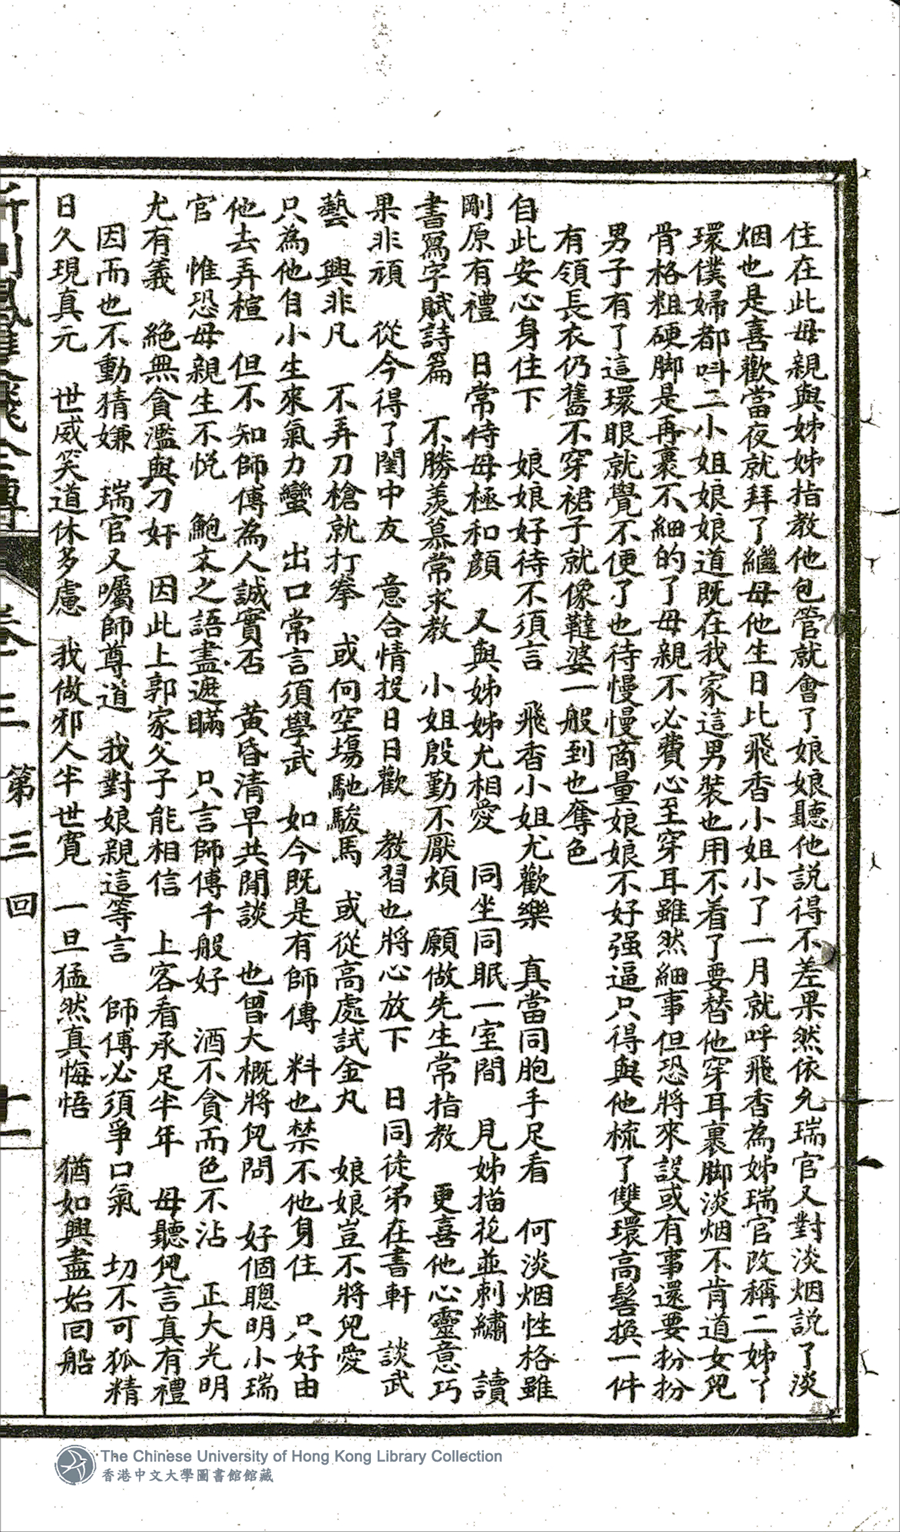 住在此母親與姊姊指教他包管就會了娘娘聽他説得不差果然依允瑞官又對淡烟説了淡
烟也是喜歡當夜就拜了繼母他生日比飛香小姐小了一月就呼飛香為姊瑞官改稱二姊丫
環僕婦都呌二小姐娘娘道既在我家這男裝也用不着了要替他穿耳裹脚淡烟不肯道女兒
骨格粗硬脚是再裹不細的了母親不必費心至穿耳雖然細事但恐將來設或有事還要扮扮
男子有了這環眼就覺不便了也待慢慢商量娘娘不好强逼只得與他梳了雙環高髻換一件
有領長衣仍舊不穿裙子就像韃婆一般到也奪色
自此安心身住下　娘娘好待不須言　飛香小姐尤歡樂　真當同胞手足看　何淡烟性格雖
剛原有禮　日常侍母極和顏　又與姊姊尤相愛　同坐同眠一室間　見姊描花並刺繡　讀
書寫字賦詩篇　不勝羡慕常求教　小姐殷勤不厭煩　願做先生常指教　更喜他心靈意巧
果非頑　從今得了閨中友　意合情投日日歡　教習也將心放下　日同徒弟在書軒　談武
藝　興非凡　不弄刀槍就打拳　或何空塲馳駿馬　或從高處試金丸　娘娘豈不將兒愛
只為他自小生來氣力蠻　出口常言須學武　如今既是有師傅　料也禁不他身住　只好由
他去弄楦　但不知師傅為人誠實否　黄昏清早共閒談　也曾大概將兒問　好個聰明小瑞
官　惟恐母親生不悦　鮑文之語盡遮瞞　只言師傅千般好　酒不貪而色不沾　正大光明
尤有義　絶無貪濫與刁奸　因此上郭家父子能相信　上客看承足半年　母聽兒言真有禮
因而也不動猜嫌　瑞官又囑師尊道　我對娘親這等言　師傅必須爭口氣　切不可狐精
日久現真元　世威笑道休多慮　我做邪人半世寛　一旦猛然真悔悟　猶如興盡始回船
卷三　第三回
The Chinese University of Hong Kong Library Collection
香港中文大學圖書館館藏